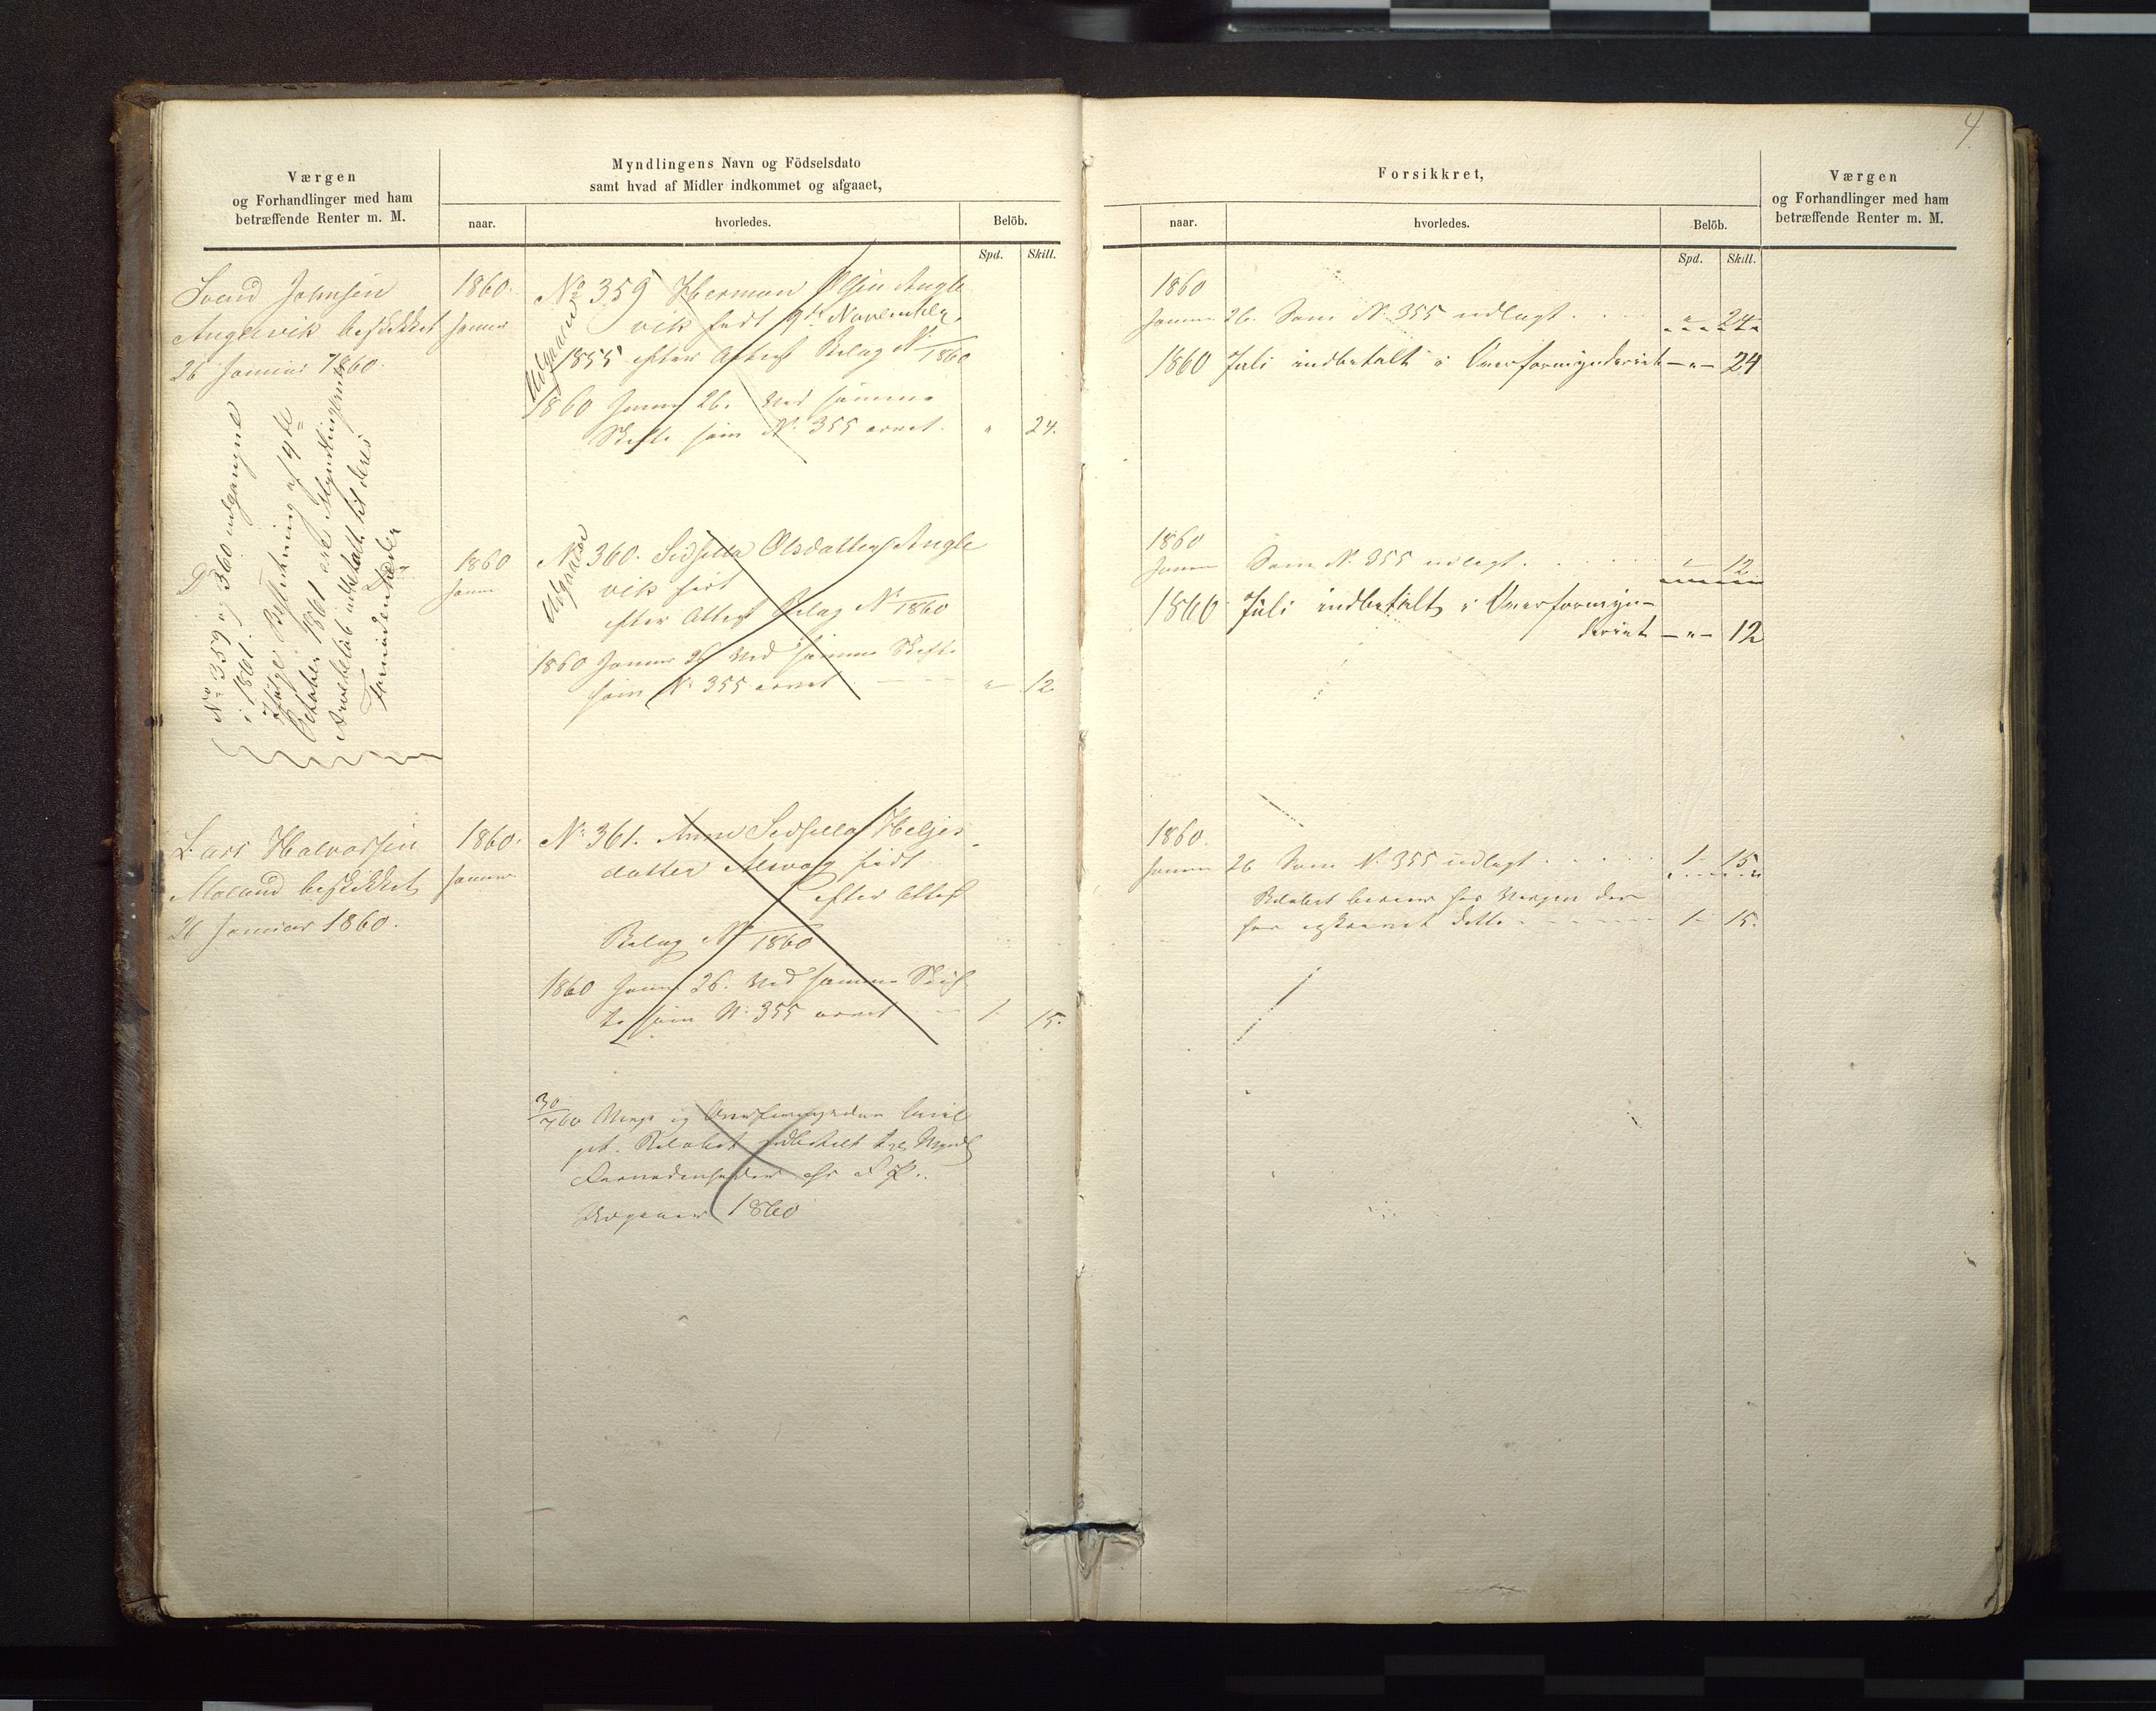 4
Værgen
og Forhandlinger med ham
betræffende Renter m. M.
Myndlingens Navn og Födselsdato
samt hvad af Midler indkommet og afgaaet,
naar.
hvorledes.
Belöb.
Spd.
Skill.
Svend Johnsen
Anglevik beskikket
26 Januar 1860.
1860.
Januar
No 359 Herman Olsen Angle
vik født 9de November
1855 efter Attest Bilag No /1860
Udgaaer
1860 Januar 26. Ved samme
Skifte som No 355 arvet.
" 24.
No 359 og 360 udgangne
i 1861.
Ifølge Beslutning af 9de
October 1861 ere Myndlingernes
Arvebeløb udbetalt til deres
Fornødenheder
Do
Do
1860
Januar
No 360. Sidsella Olsdatter Angle
vik født
Udgaaer
efter Attest Bilag No /1860
1860 Januar 26 Ved samme Skifte
som No 355 arvet
" 12
Lars Halvorsen
Moland beskikket
26 Januar 1860.
1860.
Januar
No 361. Anne Sidsella Heljes
datter født
efter Attest
Bilag No /1860
1860 Januar 26. Ved samme Skif
te som No 355 arvet
1 15.
30/7 60 Værge og Overformynder
Beløbet udbetalt til Mynd
Fornødenheder
Udgaaer 1860
Forsikkret,
naar.
hvorledes.
Belöb.
Spd.
Skill.
Værgen
og Forhandlinger med ham
betræffende Renter m. M.
1860
Januar 26. Som No 355 udlagt. " 24
1860 Juli indbetalt i Overformynderiet — " — 24
1860
Januar Som No 355 udlagt. " 12
1860 Juli indbetalt i Overformyn-
deriet — " — 12
1860.
Januar 26 Som No 355 udlagt 1 15
Beløbet beroer hos Værgen der
har dette 1 15.